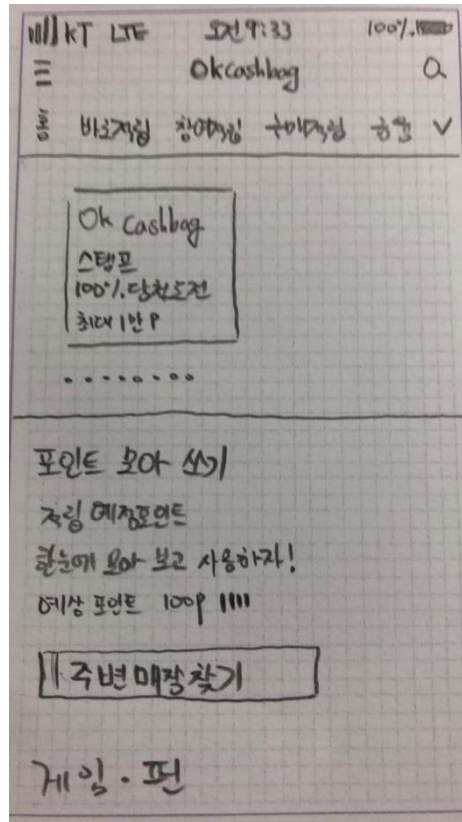 KT LTE 오전 9:33 100%
Okcashbag
홈 바로적립 참여적립 구매적립 쿠폰
Ok Cashbag
스탬프
100% 당첨도전
최대 1만 P
포인트 모아 쓰기
적립 예정포인트
한눈에 모아 보고 사용하자!
예상 포인트 100P
주변매장찾기
게임 · 펀